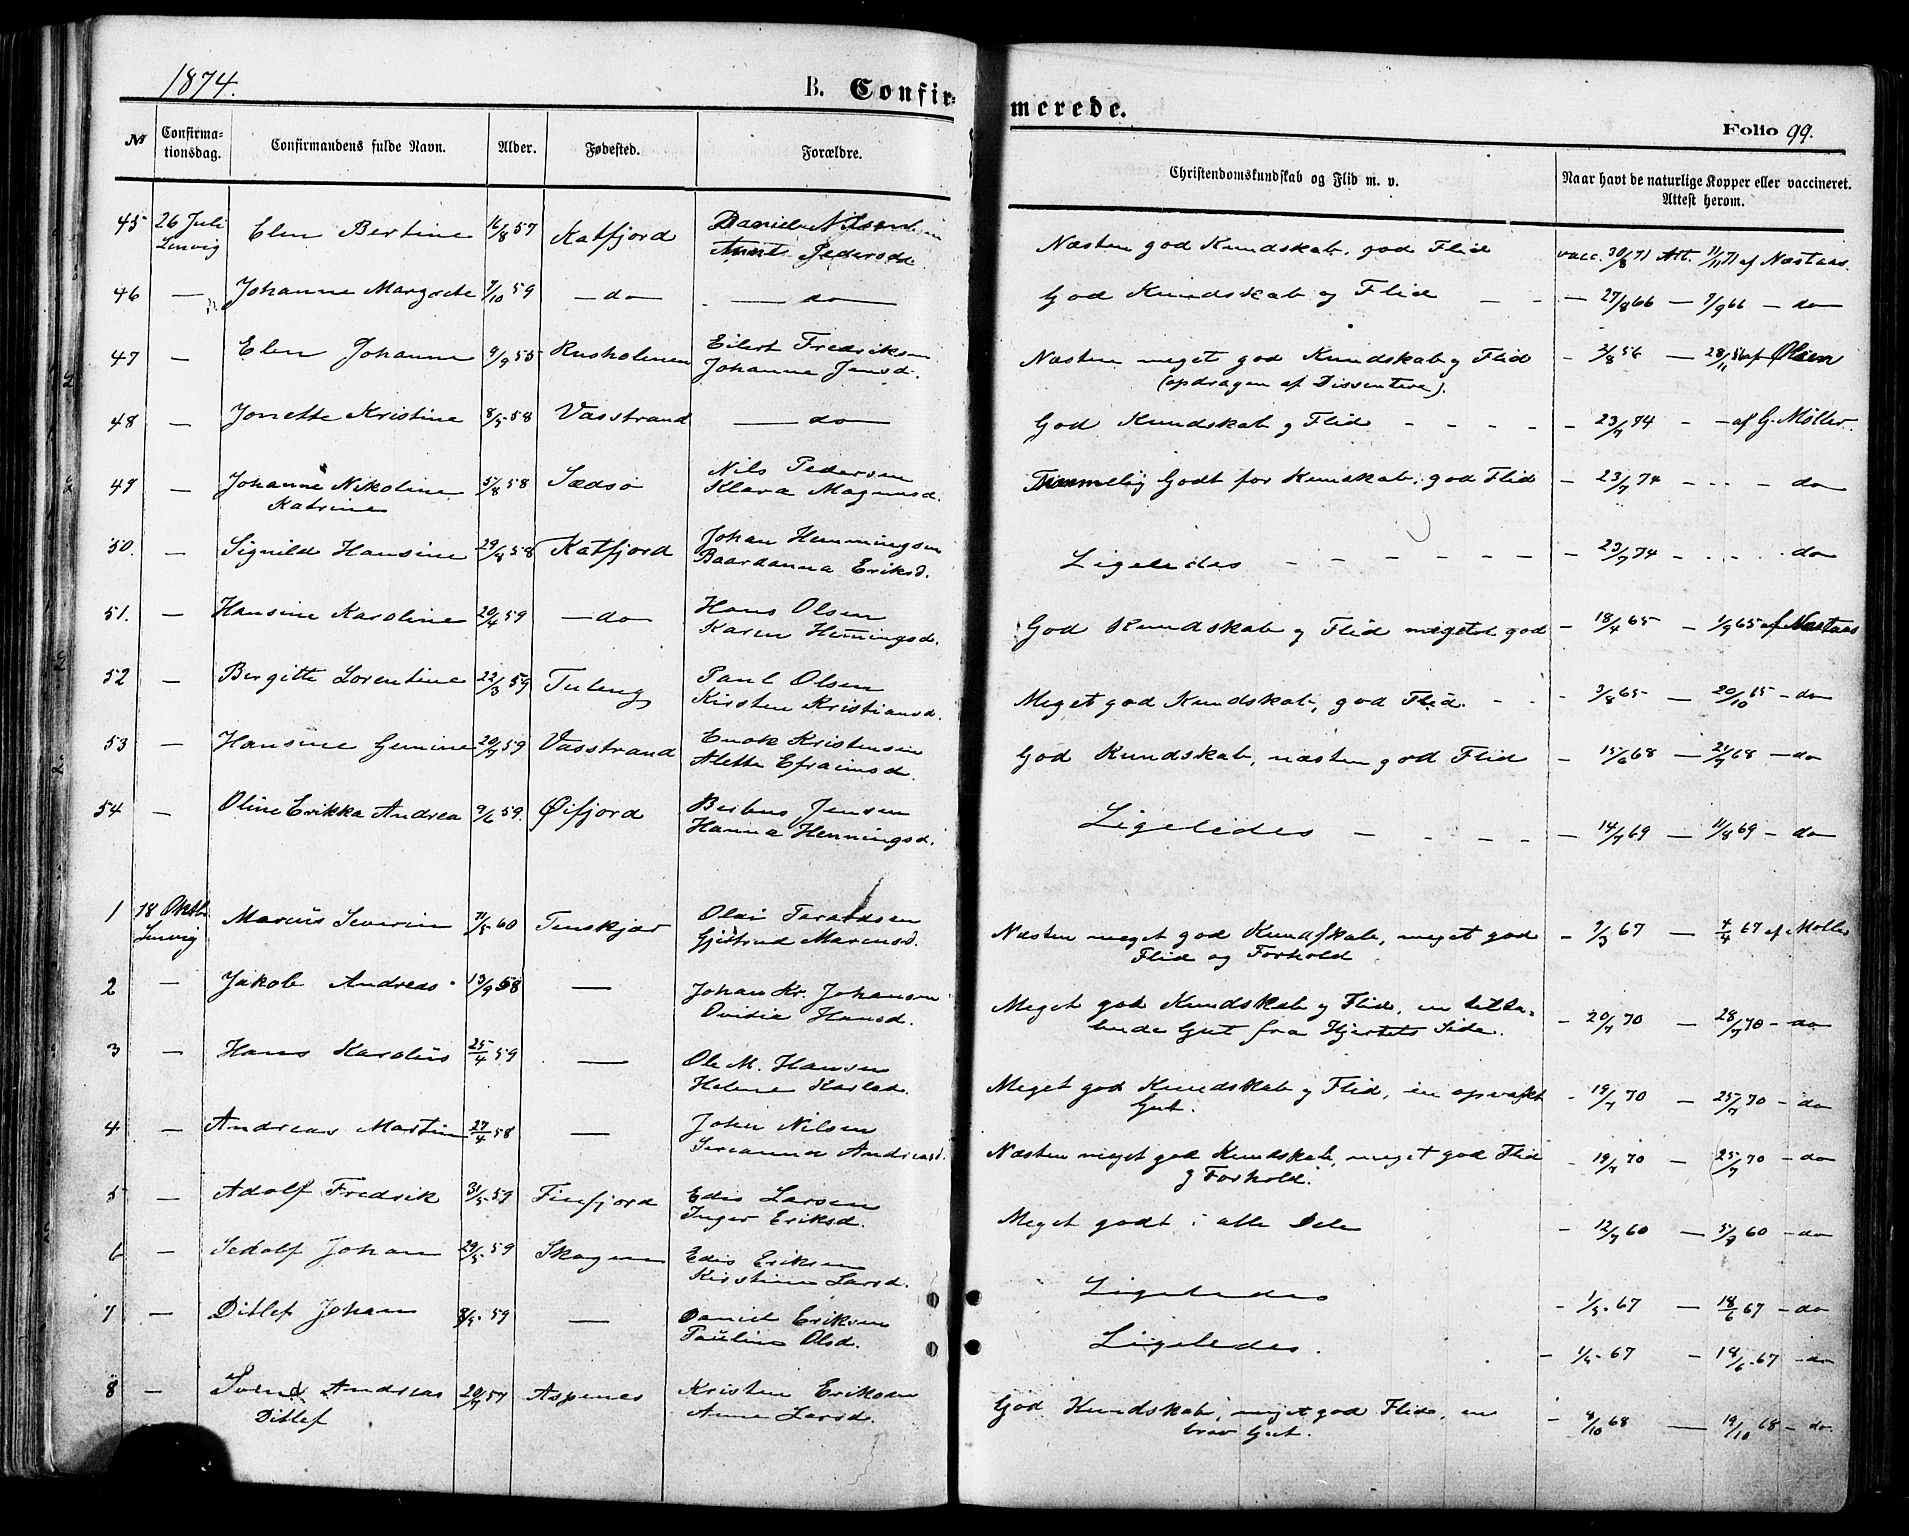 1874.
B. Confirmerede.
Folio 99.
№ Confirmationsdag. Confirmandens fulde Navn. Alder. Fødested. Forældre. Christendomskundskab og Flid m. v. Naar havt de naturlige Kopper eller vaccineret. Attest herom.
45 26 Juli Lenvig Elen Bertine 16/8 57 Katfjord Daniel Pedersd. Næsten god Kundskab, god Flid vacc. 30/8 71 Att. 11/11 71 af Næstaas.
46 — Johanne Margrete 7/10 59 — do — — do — God Kundskab og Flid — — — 27/8 66 — 7/9 66 — do
47 — Elen Johanne 9/9 55 Rusholmen Eilert Fredriksen
Johanne Jensd. Næsten meget god Kundskab og Flid
(opdragen af Dissentere). - 2/8 56 — 28/11 56 af Olsen
48 — Jonette Kristine 8/5 58 Vasstrand — do — God Kundskab og Flid - - - - - 23/7 74 - - af G. Møller.
49 — Johanne Nikoline
Katrine 5/8 58 Sædsø Nils Pedersen
Klara Magnusd. Timmelig Godt for Kunskab, god Flid - 23/7 74 - - - - do
50. — Signilde Hansine 29/8 58 Katfjord Johan Hemmingsen
Baardanna Eriksd. Ligeledes - - - - - - 23/7 74 - - - - do
51. — Hansine Karoline 20/4 59 — do — Hans Olsen
Karen Hemingsd. God Kundskab og Flid megetet god - 18/4 65 - 1/9 65 af Næstaas
52 — Bergitte Lorentine 22/3 59 Tuleng Paul Olsen
Kirsten Kristiansd. Meget god Kundskab, god Flid. - - - 3/8 65 — 20/10 65 - do
53 — Hansine Gemine 20/7 59 Vasstrand Enok Kristensen
Alette Efraimsd. God Kundskab, næsten god Flid - 15/6 68 — 21/7 68 — do
54 — Oline Erikka Andrea 9/6 59. Øifjord Jensen
Hanna Henningsd. Ligeledes — - - - — 14/7 69 — 11/8 69 — do
1 18 Oktbr Lenvig Marius Severin 11/5 60 Tenskjær Olai
Gjertrud Marensd. Næsten meget god Kundskab, meget god
Flid og Forhold - 9/3 67 — 4/4 67 af Møller
2 — Jakob Andreas 13/9 58 — Johan Kr. Johansen
Ovidie Hansd. Meget god Kundskab og Flid, en tilta-
lende Gut fra Hjertets Side. - 20/7 70 — 28/7 70 - do
3 — Hans Karolius 25/4 59 — Ole M. Hansen
Helene Karlsd. Meget god Kundskab og Flid, en opvakt
Gut. - 19/7 70 — 25/7 70 - do
4 — Andreas Martin 27/4 58 — John Nilsen
Sereanna Andreasd. Næsten meget god Kundskab, meget god Flid
og Forhold. - 19/7 70 — 25/7 70 — do
5 — Adolf Fredrik 31/5 59 Finfjord Edis Larsen
Inger Eriksd. Meget godt i alle Dele - 12/7 60 — 5/9 60 — do
6 — Sedolf Johan 29/5 59 Skogen Edis Eriksen
Kirstine Larsd. Ligeledes - 1/5 67 — 18/6 67 — do
7 — Ditlef Johan 8/5 59 — Daniel Eriksen
Pauline Olsd. Ligeledes. - 1/5 67 - 18/6 67 - do
8 — Svend Andreas
Ditlef 20/7 57 Aspenes Kristen Eriksen
Anne Larsd. God Kundskab, meget god Flid, en
brav Gut. - 8/10 68 — 19/10 68 - do.